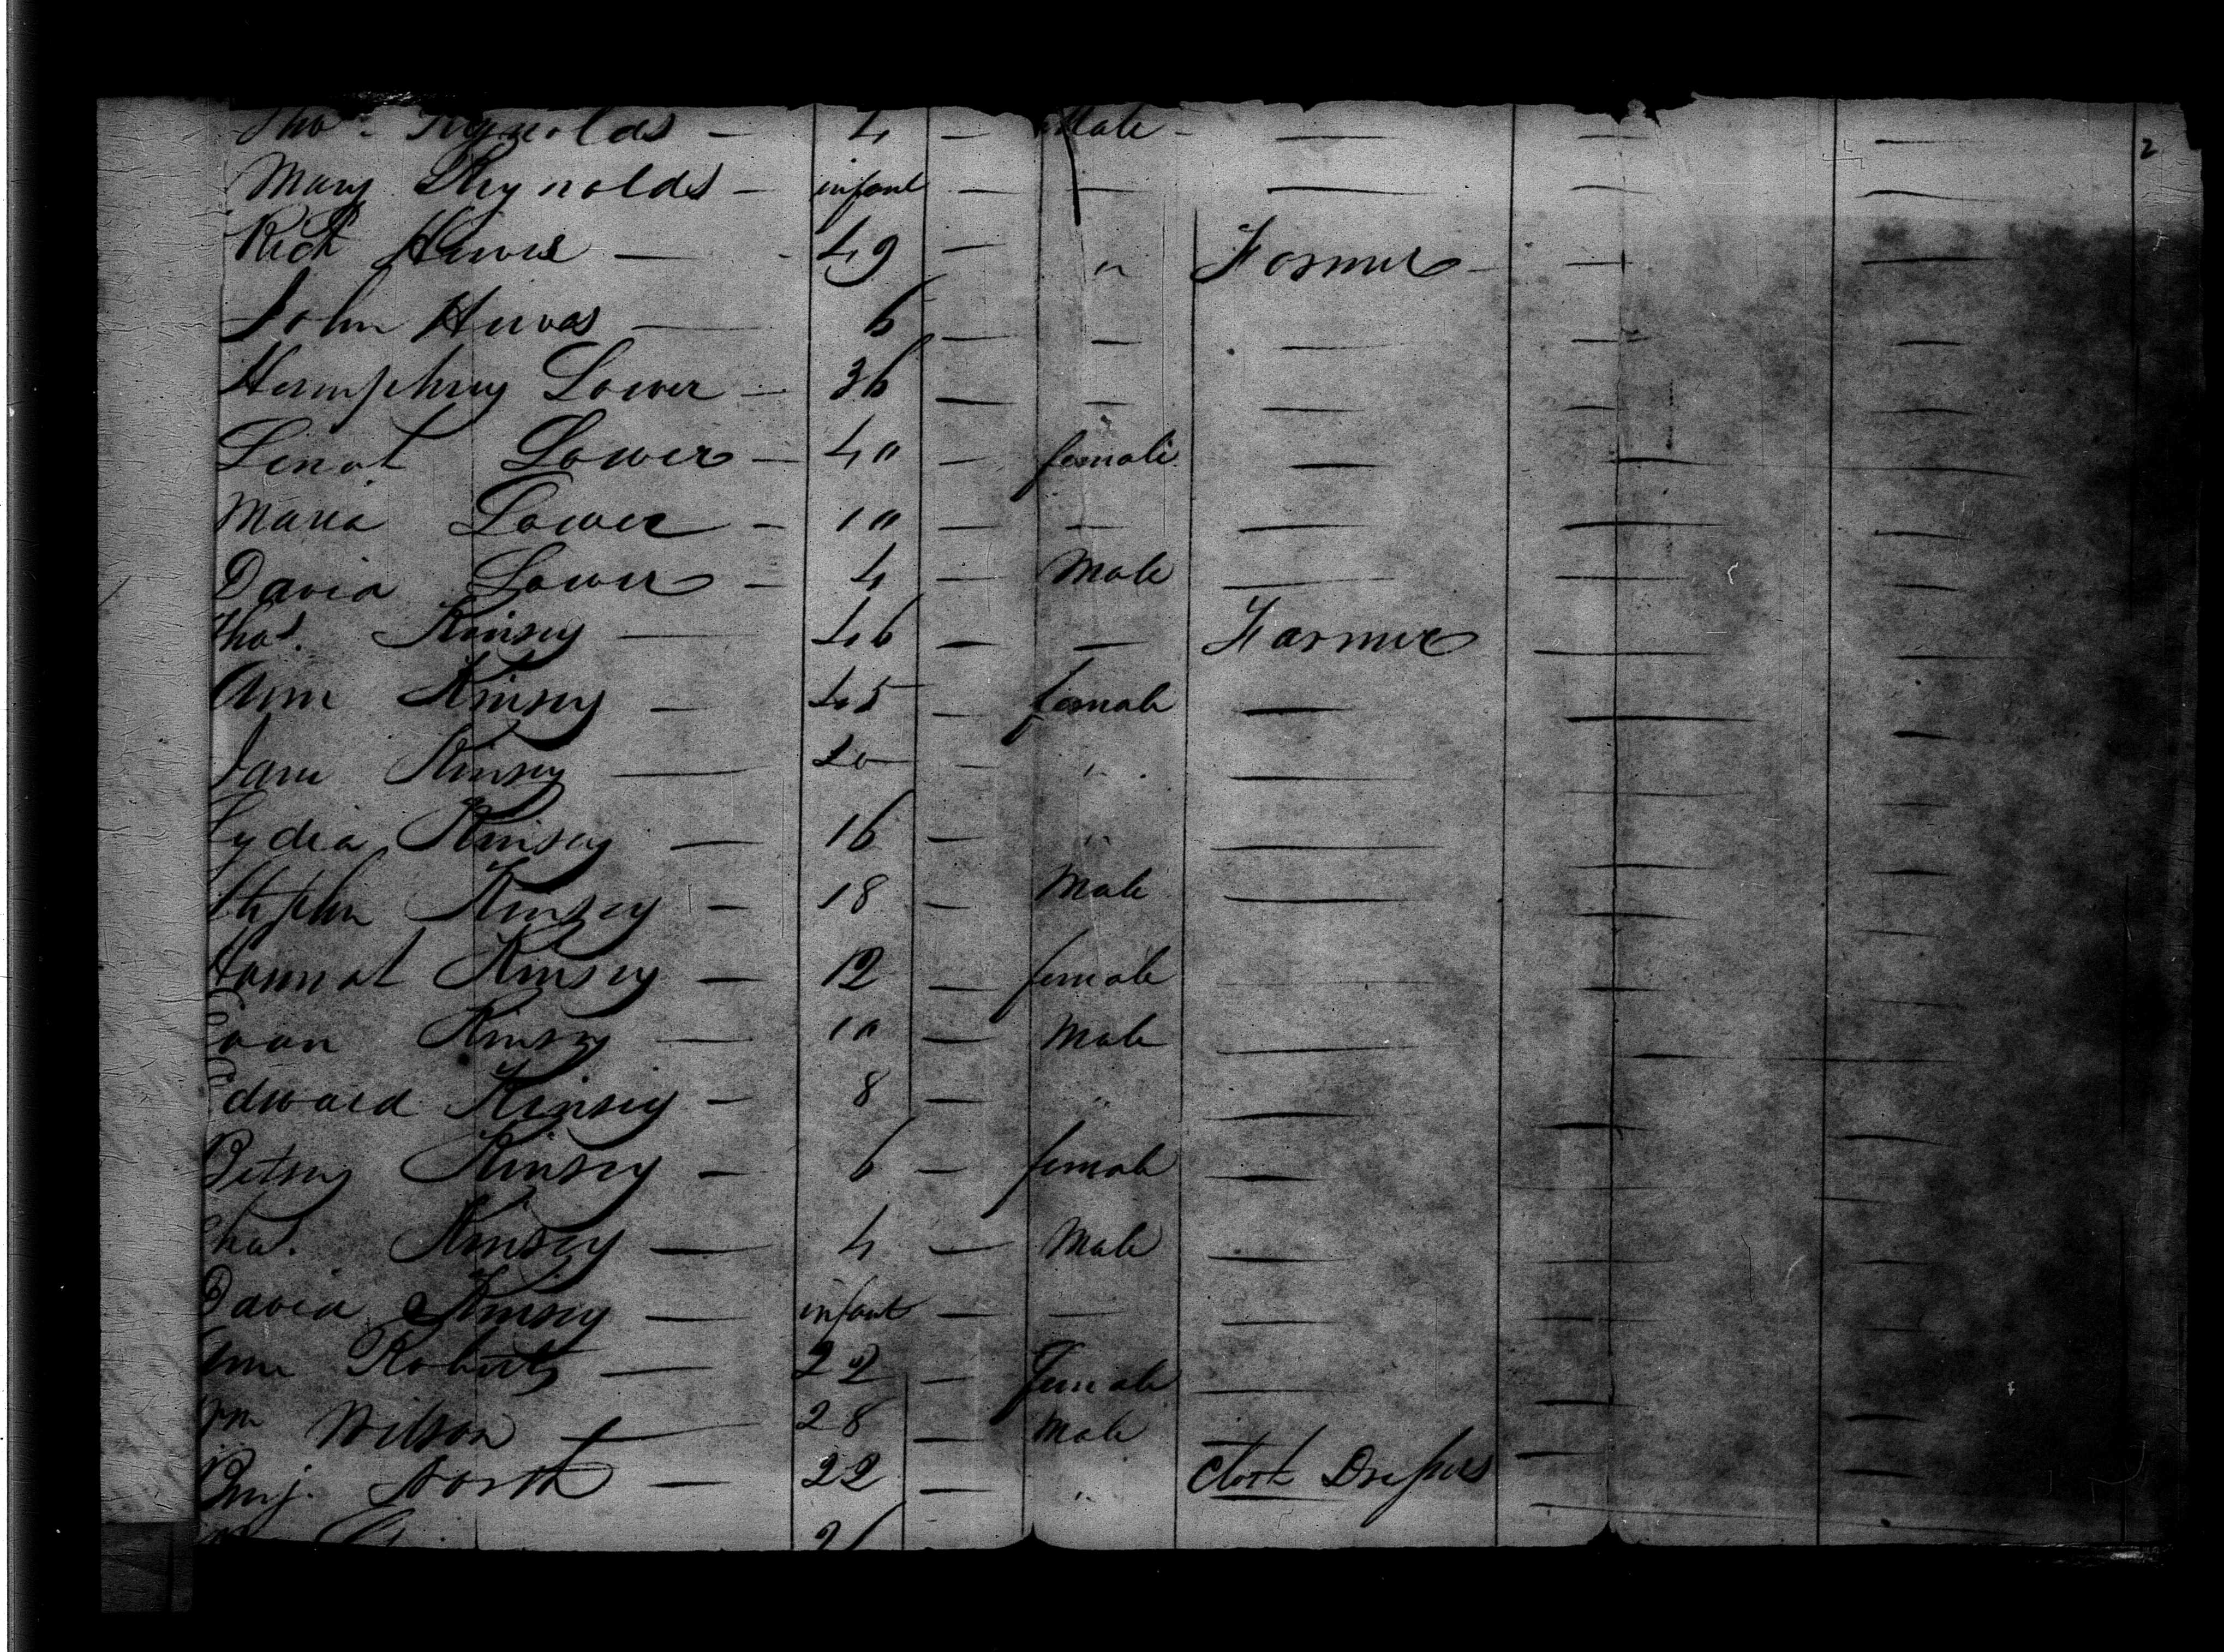 2
Thos Reynolds — 4 — Male — — — —
Mary Reynolds — infant — — — — —
Richd Hewes — 49 — " Farmer — — —
John Hewes — 6 — — — — —
Humphrey Lower — 36 — — — — —
Lower — 40 — female — — —
Maria Lower — 10 — — — — —
David Lower — 4 — Male — — —
Thos. Kinsey — 46 — — Farmer — —
Ann Kinsey — 45 — female — — —
Jane Kinsey — 20 — " — — —
Lydia Kinsey — 16 — " — — —
Stephn Kinsey — 18 — Male — — —
Hannah Kinsey — 12 — female — — —
Evan Kinsey — 10 — Male — — —
Edward Kinsey — 8 — " — — —
Betsey Kinsey — 6 — female — — —
Thos. Kinsey — 4 — Male — — —
David Kinsey — infant — — — — —
Ann Roberts — 22 — Female — — —
Wm Wilson — 28 — Male — — —
Benj. North — 22 — " Cloth Dresser — —